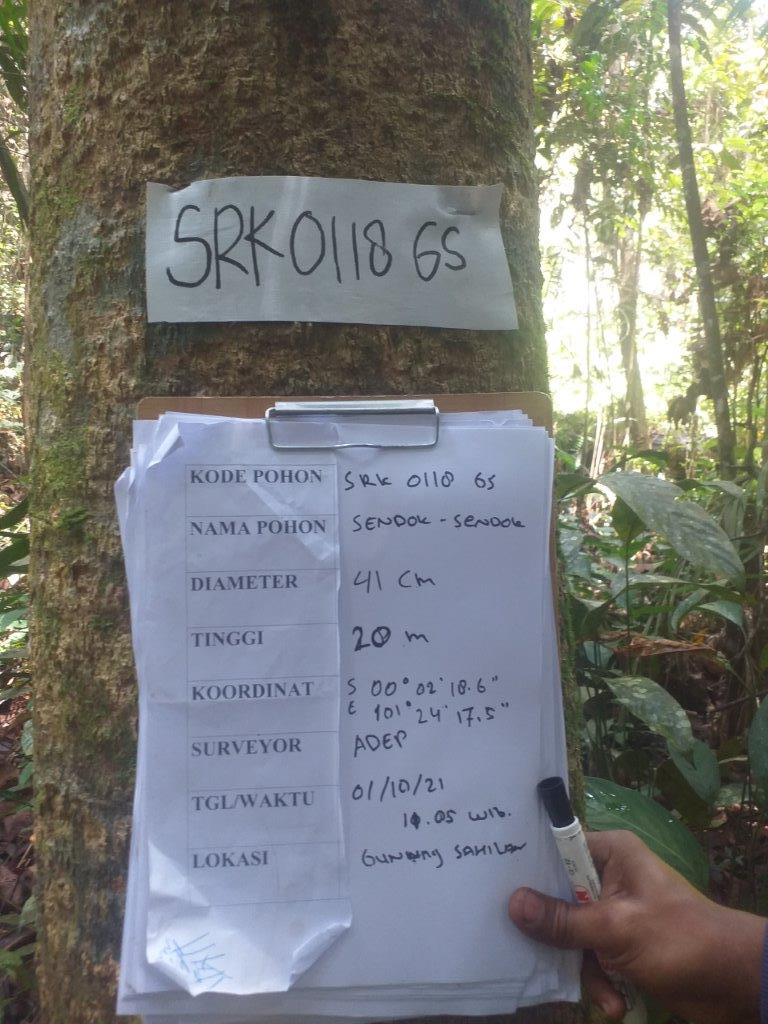 SRK 0118 GS
KODE POHON SRK 0118 GS
NAMA POHON SENDOK - SENDOK
DIAMETER 41 cm
TINGGI 20 m
KOORDINAT S 00° 02' 18.6"
E 101° 24' 17.5"
SURVEYOR ADEP
TGL/WAKTU 01/10/21
.05 WIB.
LOKASI GUNUNG SAHILAN